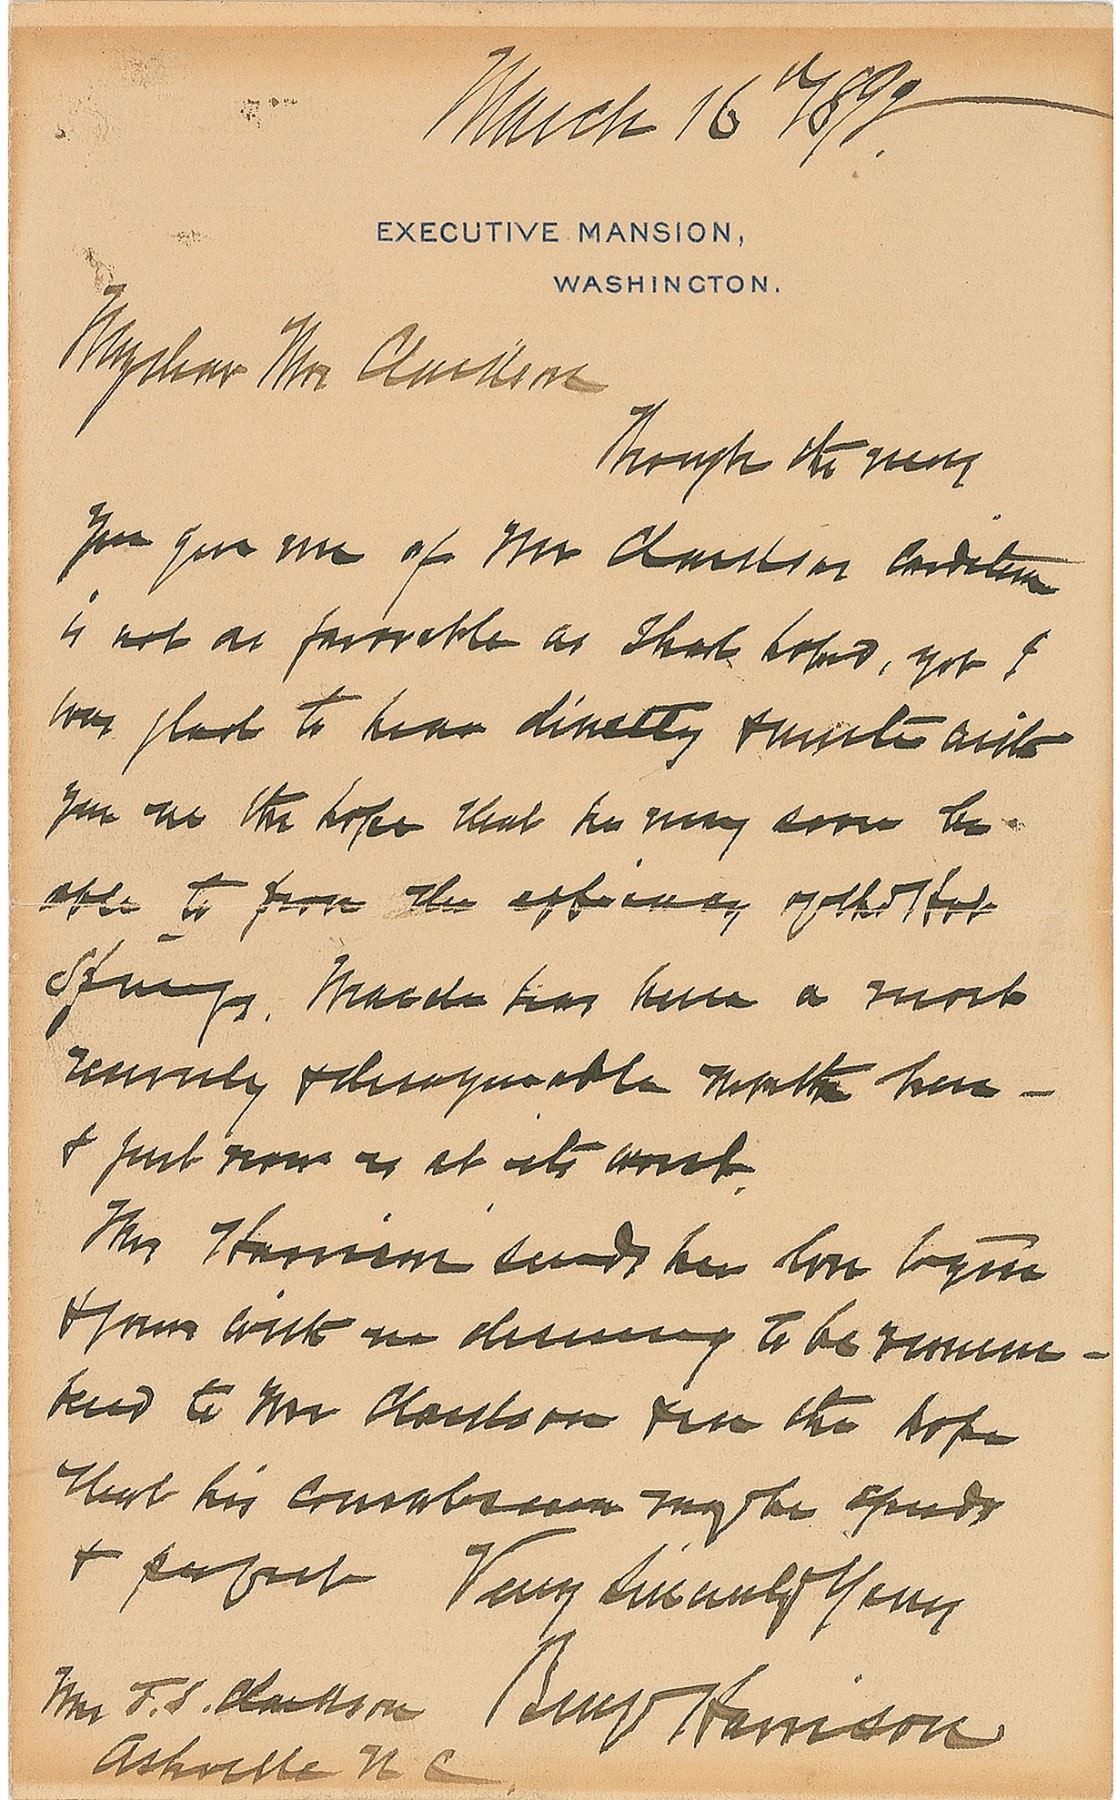 March 16th /89
EXECUTIVE MANSION,
WASHINGTON.
My dear Mrs Clarkson
Though the news
you give me of Mr Clarksons condition
is not as favorable as I had hoped, yet I
was glad to hear directly & unite with
you in the hope that he may soon be
able to prove the efficiency of the Hot
Springs. March has been a most
unruly & disagreeable month here -
& just now is at its worst.
Mrs Harrison sends her love to you
& joins with me desiring to be remem-
bered to Mr Clarkson & in the hope
that his convalescence may be speedy
& perfect Very Sincerely Yours
Benj Harrison
Mrs J. S. Clarkson
Asheville N C